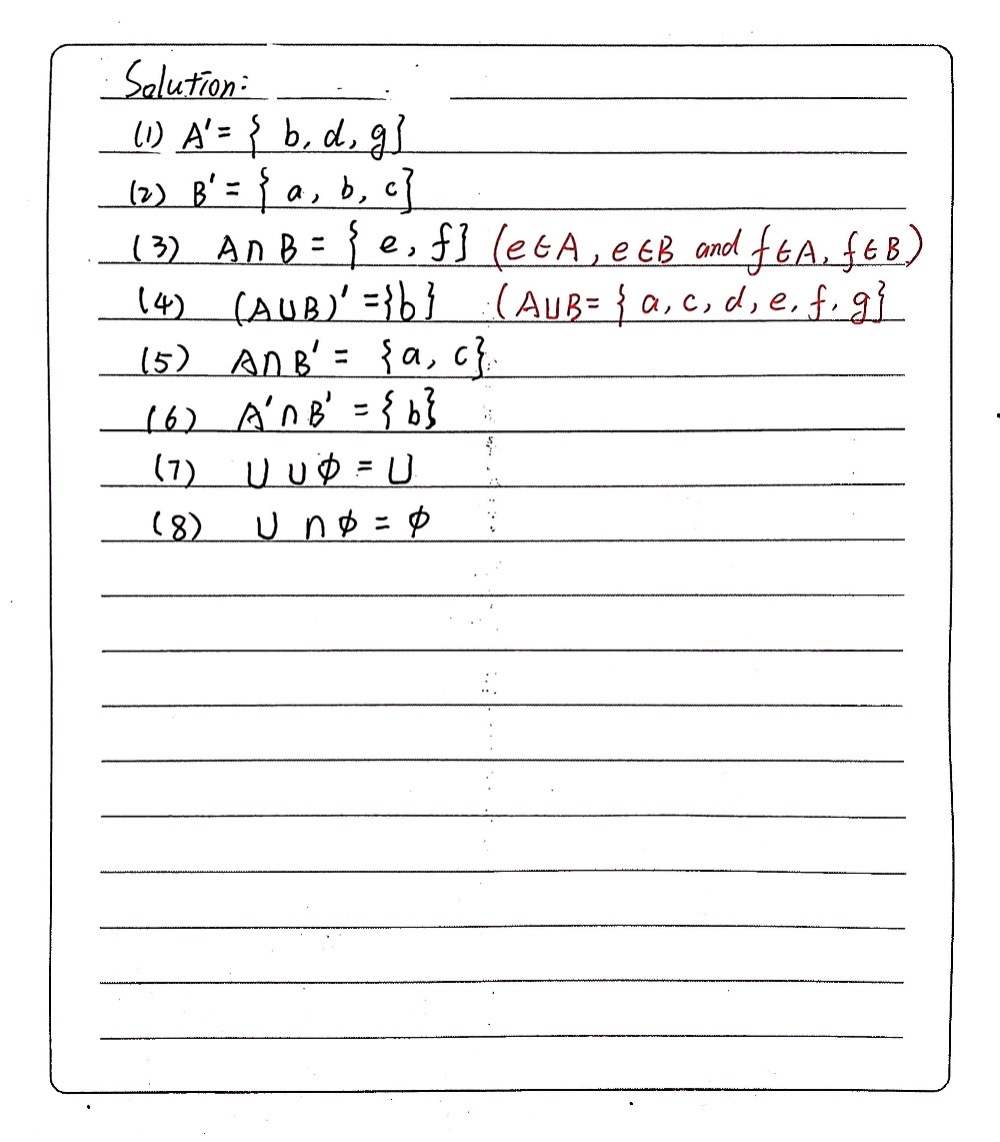 Solution:
(1) A' = { b, d, g}
(2) B' = { a, b, c}
(3) A∩B = { e, f} (e∈A, e∈B and f∈A, f∈B)
(4) (A∪B)' = {b} (A∪B = { a, c, d, e, f, g}
(5) A∩B' = {a, c}
(6) A'∩B' = { b}
(7) U ∪ ϕ = U
(8) U ∩ ϕ = ϕ